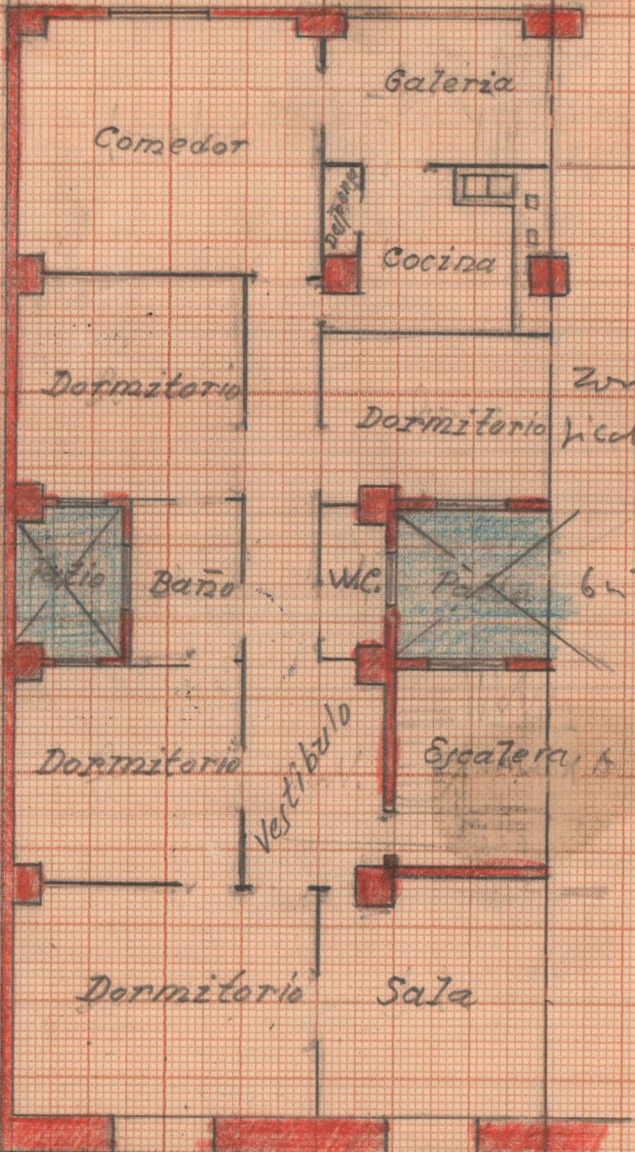 Galeria
Comedor
Despensa
Cocina
Dormitorio
Dormitorio
Patio
Baño
W.C.
Patio
Vestíbulo
Dormitorio
Escalera
Dormitorio
Sala